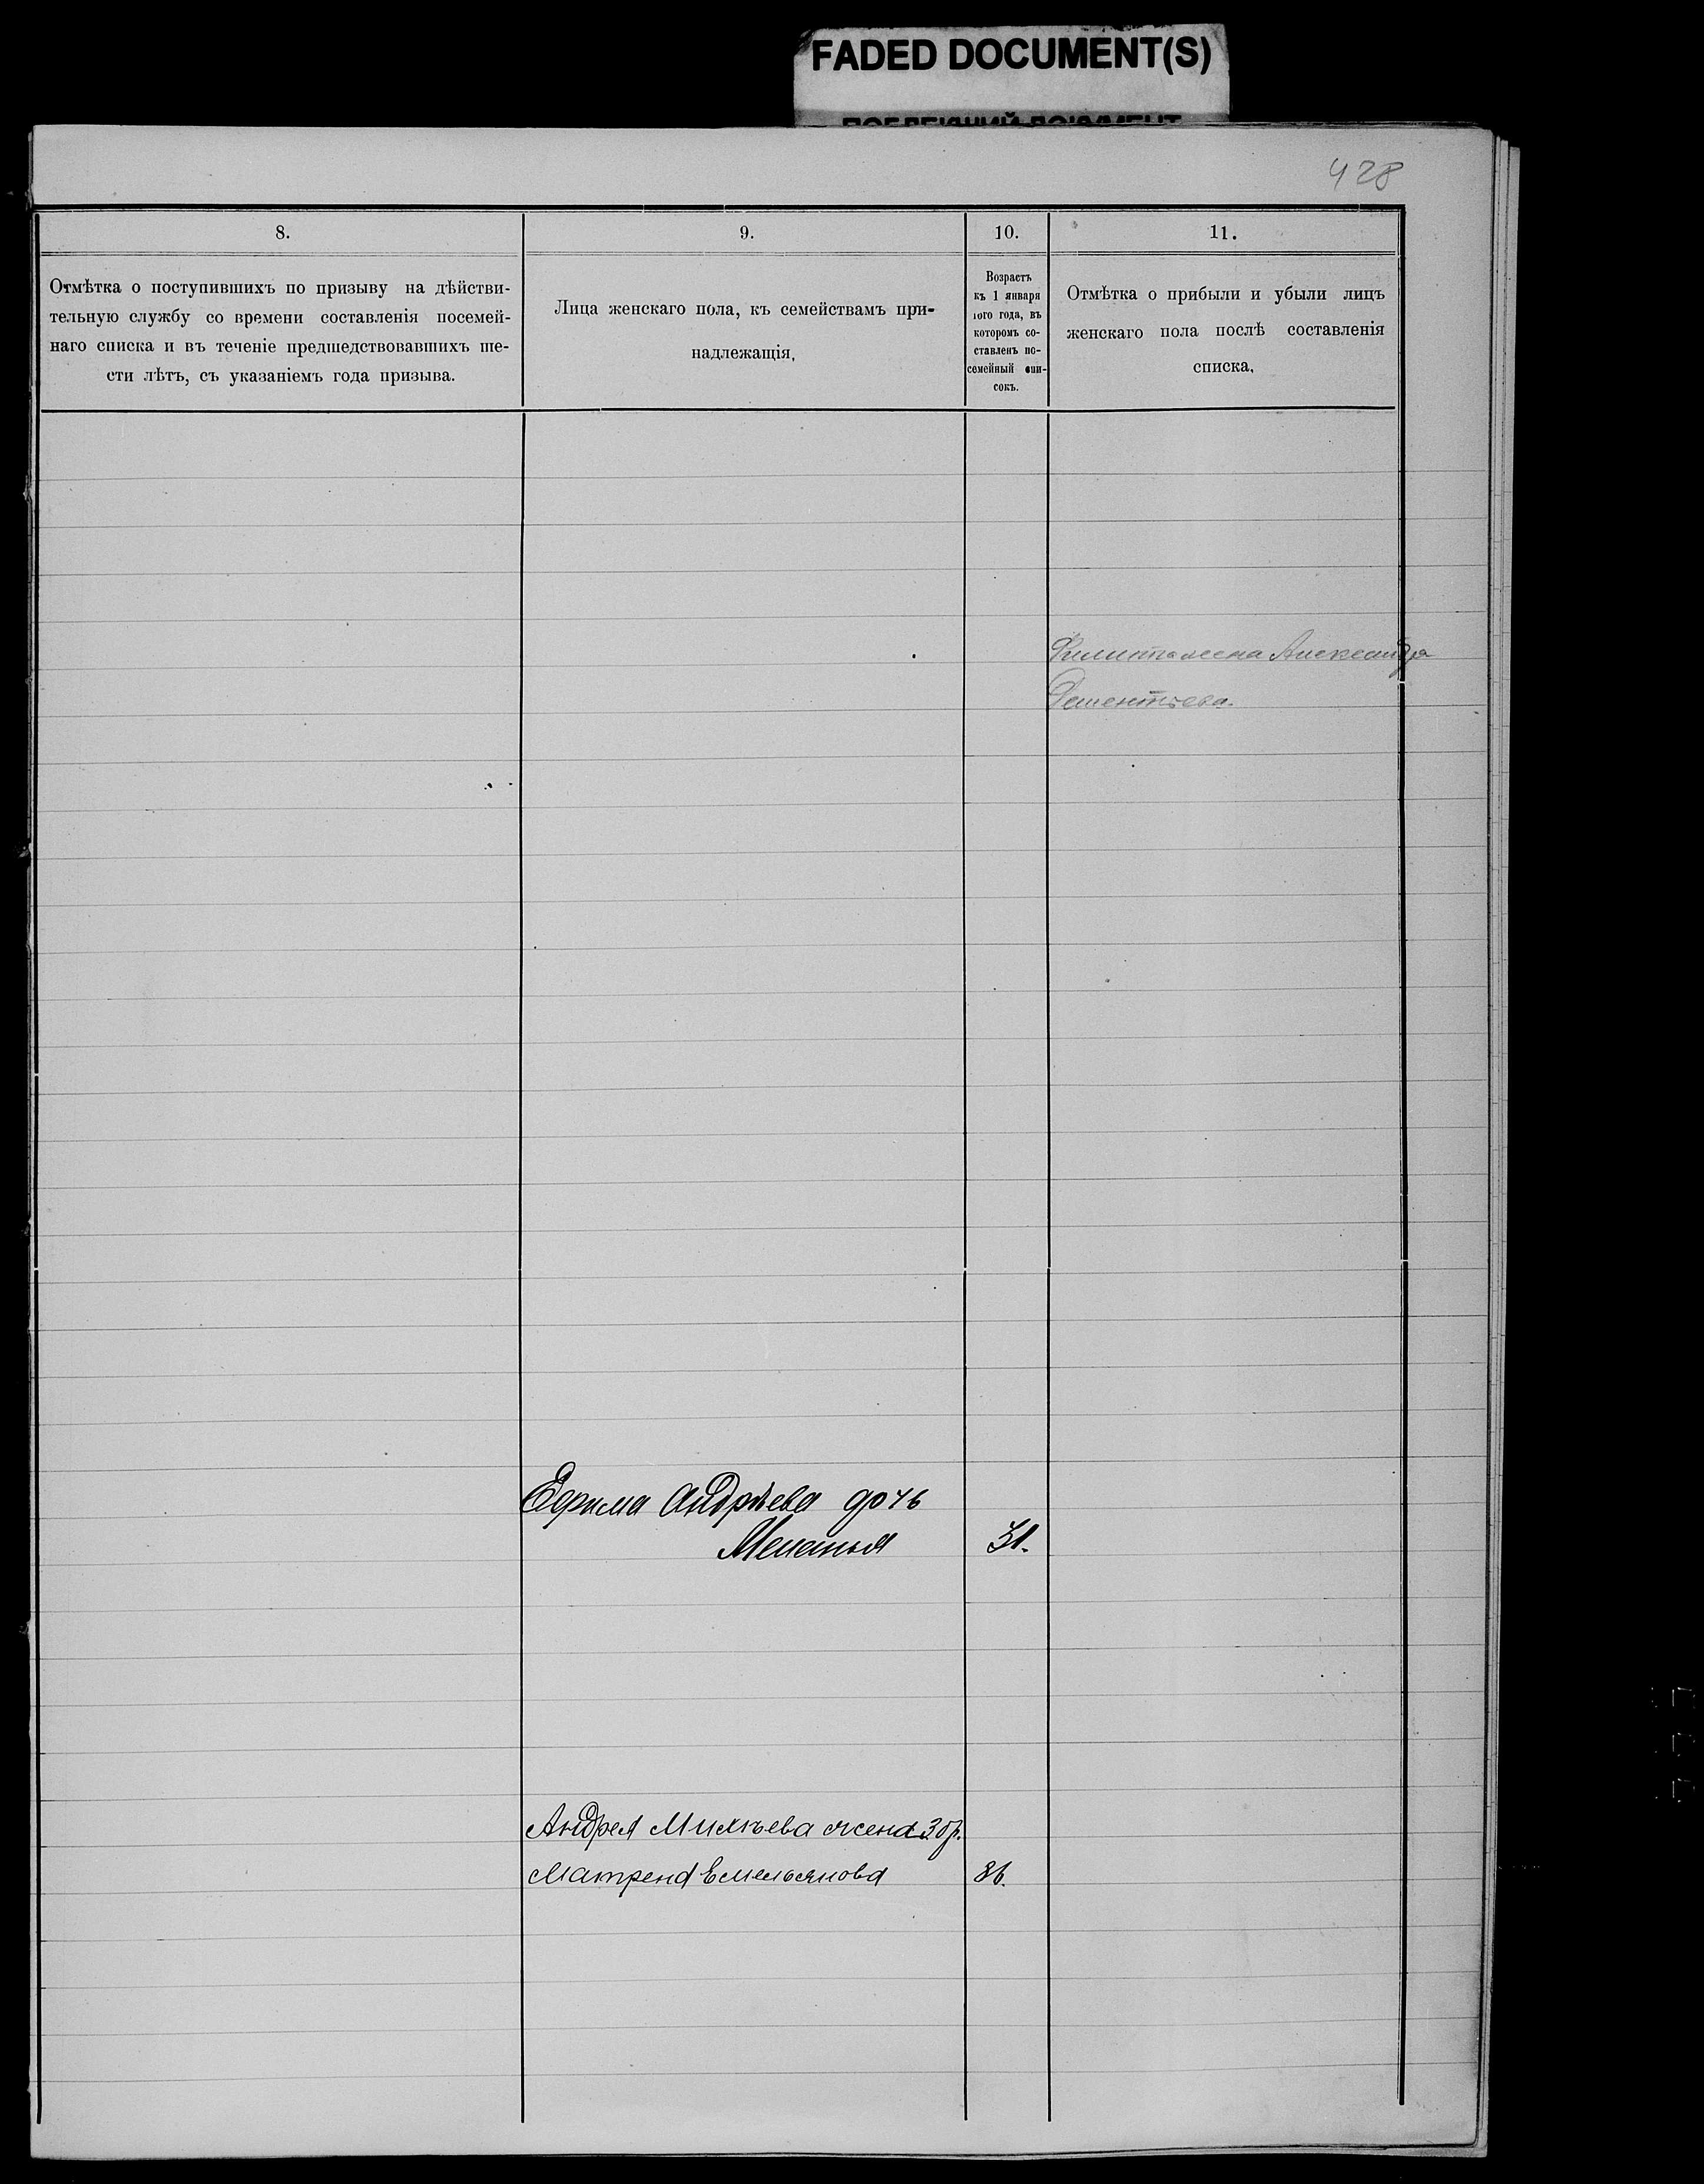 FADED DOCUMENT(S)
ПОБЛЕКШИЙ ДОКУМЕНТ
428
8.
9.
10.
11.
Отмѣтка о поступившихъ по призыву на дѣйстви-
тельную службу со времени составленія посемей-
наго списка и въ теченіе предшедствовавшихъ ше-
сти лѣтъ, съ указаніемъ года призыва.
Лица женскаго пола, къ семействамъ при-
надлежащія,
Возрастъ
къ 1 января
того года, въ
которомъ со-
ставленъ по-
семейный спи-
сокъ.
Отмѣтка о прибыли и убыли лицъ
женскаго пола послѣ составленія
списка,
Филита жена Александра
Дементьева.
Ефима Андрѣева дочь
Меланья 31.
Андрея Михѣева жена 3 бр.
Матрена Емельянова 36.